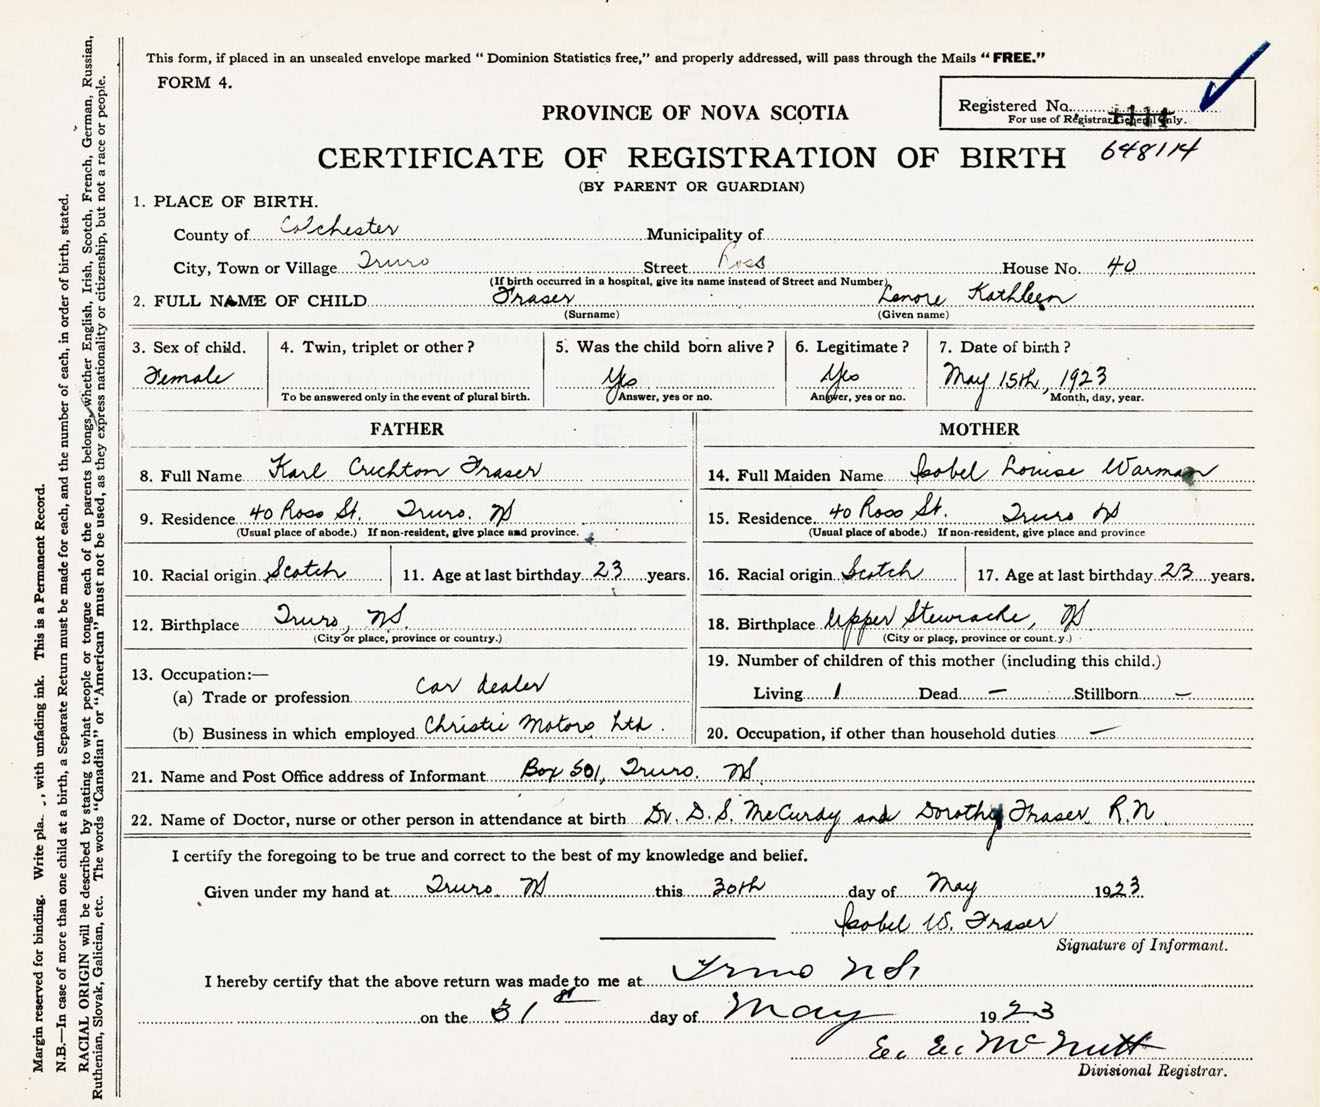 This form, if placed in an unsealed envelope marked “ Dominion Statistics free,” and properly addressed, will pass through the Mails “ FREE.”
FORM 4.
Registered No.
For use of Registrar General only.
648114
PROVINCE OF NOVA SCOTIA
CERTIFICATE OF REGISTRATION OF BIRTH
(BY PARENT OR GUARDIAN)
1. PLACE OF BIRTH.
County of Colchester Municipality of
City, Town or Village Truro Street Ross House No. 40
(If birth occurred in a hospital, give its name instead of Street and Number)
2. FULL NAME OF CHILD Fraser Lenore Kathleen
(Surname) (Given name)
3. Sex of child. 4. Twin, triplet or other ? 5. Was the child born alive ? 6. Legitimate ? 7. Date of birth ?
Female Yes Yes May 15th, 1923
To be answered only in the event of plural birth. Answer, yes or no. Answer, yes or no. Month, day, year.
FATHER
8. Full Name Karl Crichton Fraser
9. Residence 40 Ross St. Truro. NS
(Usual place of abode.) If non-resident, give place and province.
10. Racial origin Scotch 11. Age at last birthday 23 years.
12. Birthplace Truro, NS.
(City or place, province or country.)
13. Occupation:—
(a) Trade or profession Car dealer
(b) Business in which employed Christie Motors Ltd.
MOTHER
14. Full Maiden Name Isobel Louise Warman
15. Residence 40 Ross St. Truro NS
(Usual place of abode.) If non-resident, give place and province
16. Racial origin Scotch 17. Age at last birthday 23 years.
18. Birthplace Upper Stewiacke, NS
(City or place, province or count.y.)
19. Number of children of this mother (including this child.)
Living 1 Dead — Stillborn —
20. Occupation, if other than household duties —
21. Name and Post Office address of Informant Box 501, Truro. NS.
22. Name of Doctor, nurse or other person in attendance at birth Dr. D. S. McCurdy and Dorothy Fraser R.N.
I certify the foregoing to be true and correct to the best of my knowledge and belief.
Given under my hand at Truro NS this 30th day of May 1923
Isobel W. Fraser
Signature of Informant.
I hereby certify that the above return was made to me at Truro N.S.
on the 31st day of May 1923
E. E. McNutt
Divisional Registrar.
Margin reserved for binding. Write , with unfading ink. This is a Permanent Record.
N.B.—In case of more than one child at a birth, a Separate Return must be made for each, and the number of each, in order of birth, stated.
RACIAL ORIGIN will be described by stating to what people or tongue each of the parents belongs, whether English, Irish, Scotch, French, German, Russian,
Ruthenian, Slovak, Galician, etc. The words “Canadian” or “American” must not be used, as they express nationality or citizenship, but not a race or people.